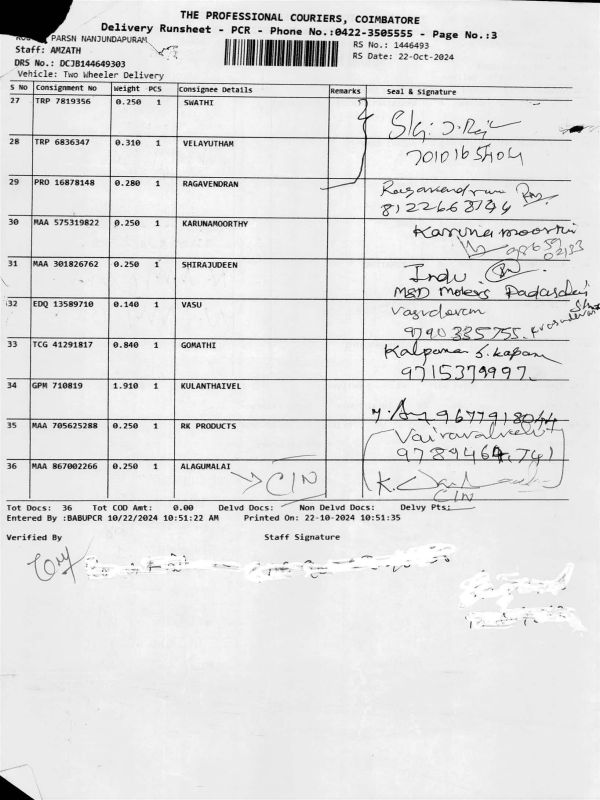 THE PROFESSIONAL COURIERS, COIMBATORE
Delivery Runsheet - PCR - Phone No.:0422-3505555 - Page No.:3
PARSN NANJUNDAPURAM
RS No.: 1446493
Staff: AMZATH
RS Date: 22-Oct-2024
DRS No.: DCJB144649303
Vehicle: Two Wheeler Delivery
S No Consignment No Weight PCS Consignee Details Remarks Seal & Signature
27 TRP 7819356 0.250 1 SWATHI
28 TRP 6836347 0.310 1 VELAYUTHAM
29 PRO 16878148 0.280 1 RAGAVENDRAN Ragavendran
8122668744
30 MAA 575319822 0.250 1 KARUNAMOORTHY Karunamoorthi
31 MAA 301826762 0.250 1 SHIRAJUDEEN Indu
32 EDQ 13589710 0.140 1 VASU Vasudevan
9790335755
33 TCG 41291817 0.840 1 GOMATHI Kalpana
9715379997
34 GPM 710819 1.910 1 KULANTHAIVEL
9677918044
35 MAA 705625288 0.250 1 RK PRODUCTS
36 MAA 867002266 0.250 1 ALAGUMALAI C/N
C/N
Tot Docs: 36 Tot COD Amt: 0.00 Delvd Docs: Non Delvd Docs: Delvy Pts:
Entered By :BABUPCR 10/22/2024 10:51:22 AM Printed On: 22-10-2024 10:51:35
Verified By Staff Signature